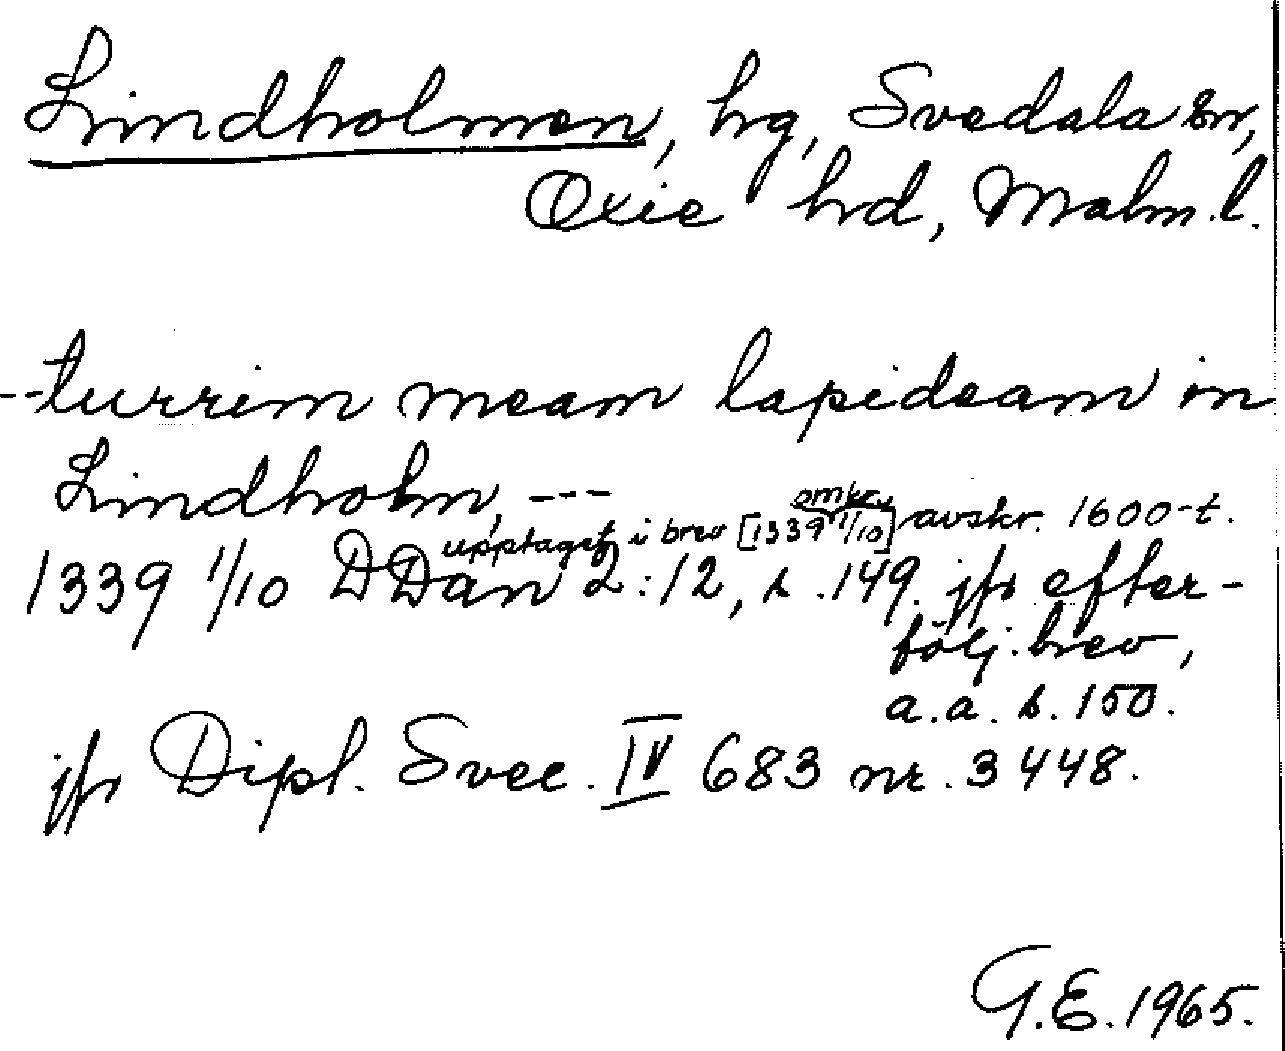 Lindholmen, hg, Svedala sn,
Oxie hd, Malm.l.
--turrim meam lapideam in
Lindholm, ---
upptaget i brev [omkr. 1339 1/10] avskr. 1600-t.
1339 1/10 DDan 2:12, s. 149. jfr efter-
följ. brev,
a.a. s. 150.
jfr Dipl. Svec. IV 683 nr. 3448.
G.E. 1965.